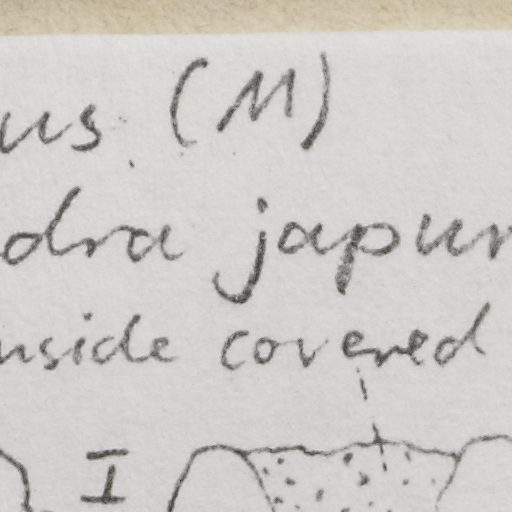 us (M)
dra japur
nside covered
I